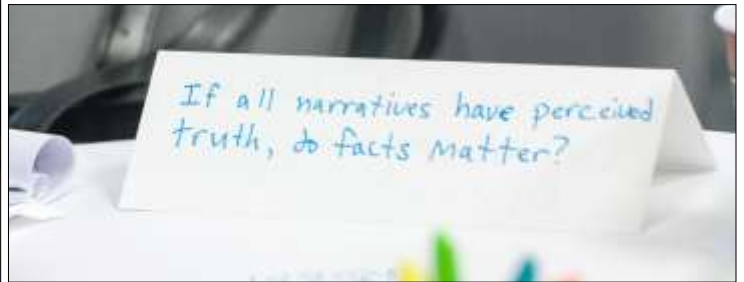 If all narratives have perceived
truth, do facts matter?